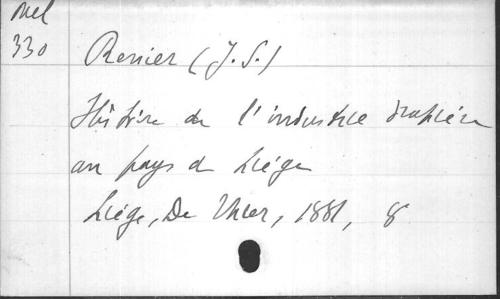 Mel
330
Renier (J. S.)
Histoire de l'industrie drapière
au pays de Liége
Liége, De Thier, 1881, 8